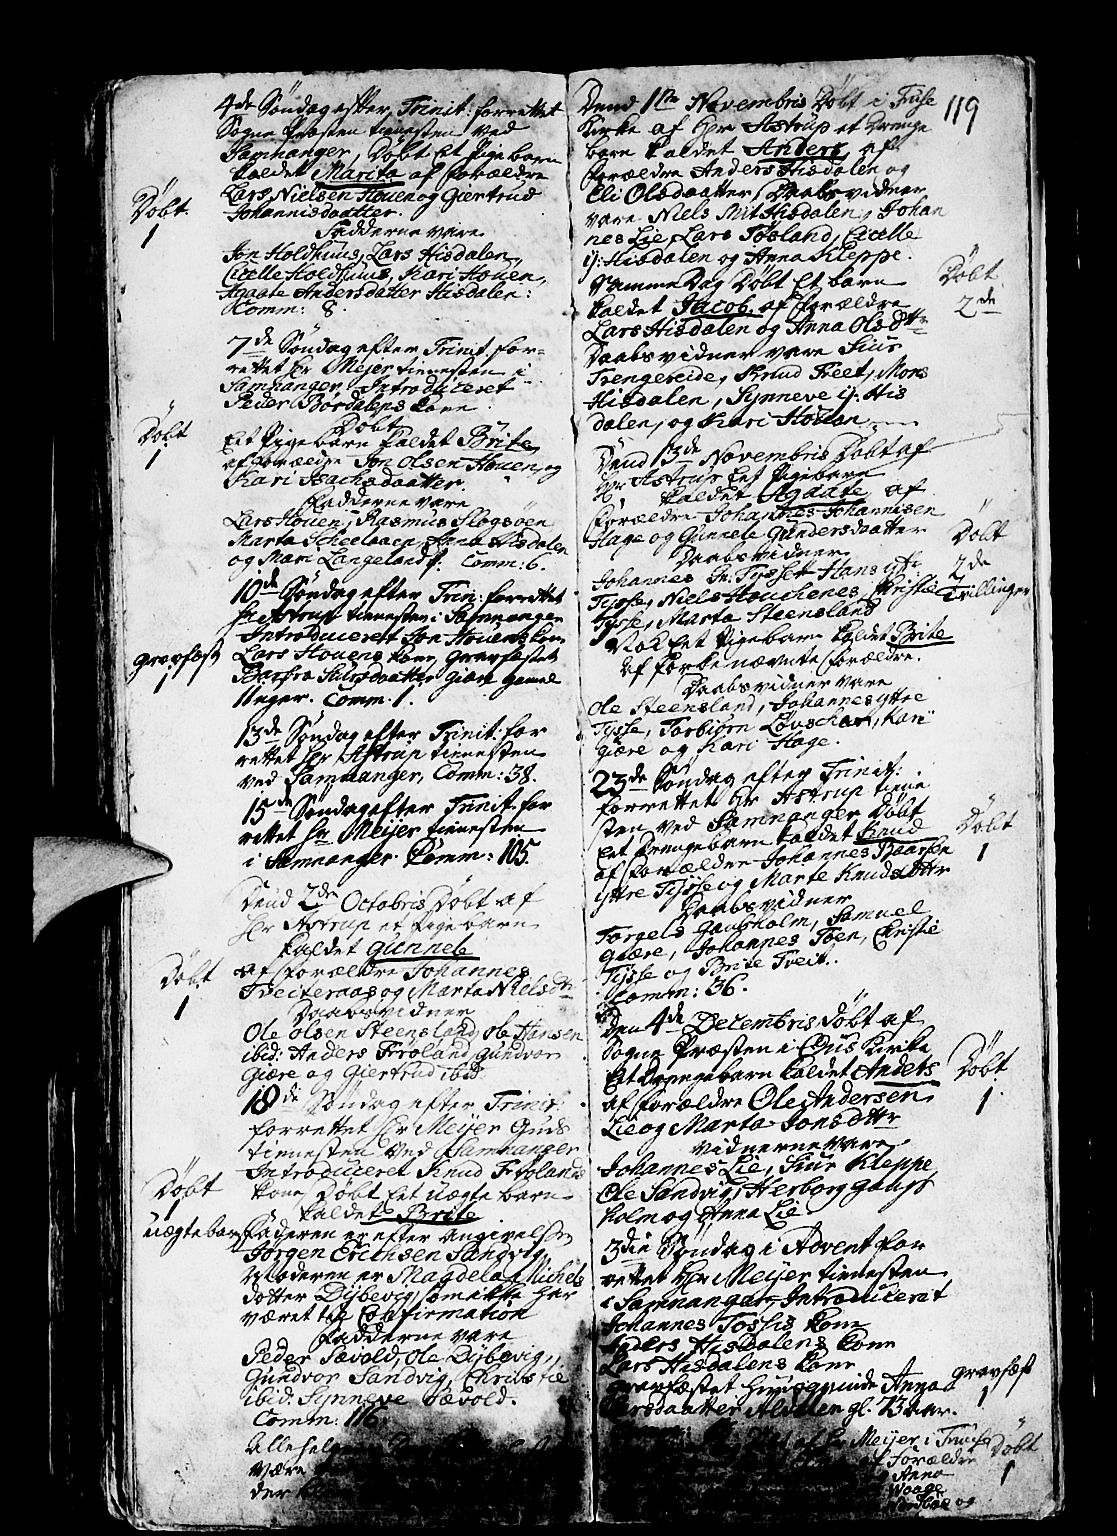 4de Søndag efter Trinit: forrettet
Sogne Præsten tienesten ved
Samnanger, Døbt Et Pige barn
kaldet Marita af forældre
Lars Nielsen Houen og Giertrud
Johannisdaatter.
Døbt
1
Fadderne vare
Jon Holdhuus, Lars Hisdalen,
Citelle Holdhuus, Kari Houen,
Agaate Andersdatter Hisdalen:
Comm: 8.
7de Søndag efter Trinit for=
rettet Hr Meijer tienesten i
Samnanger, Introduceret
Peder Børdalens kone
Døbt
Døbt
1
Eet Pige barn kaldet Brite
af forældre Jon Olsen Houen og
Kari Isachsdaatter
Fadderne vare
Lars Houen, Rasmus Slogsöen
Marta Hisdalen
og Mari Langeland. Comm: 6.
10de Søndag efter Trin: forrettet
Hr Astrup tienesten i Samnanger
Introduceret Jon Houens kone
Lars Houens kone, Gravfæstet
gravfæst
1
Siursdaatter Giære gamel
11 uger. Comm: 1.
13de Søndag efter Trinit: for
rettet Hr Astrup tienesten
ved Samnanger, Comm: 38.
15de Søndag efter Trinit. for
rettet Hr Meijer tienesten
i Samnanger. Comm: 105.
Dend 2den Octobris Døbt af
Hr Astrup et Pige barn
kaldet Gunnele
Døbt
1
af forældre Johannes
Tveiteraas og Marta Nielsdtr
Daabsvidner
Ole Olsen Steensland, Ole Hansen
ibid: Anders Frøland, Gundvor
Giære og Giertrud ibid:
18de Søndag efter Trinit.
forrettet Hr Meijer Guds
tienesten ved Samnanger
Introduceret Knud Frølands
kone, Døbt Eet uægte barn
Døbt
1
uægte barn
kaldet Brite
Faderen er efter Angivelsen
Jørgen Erichsen Sandvig,
Moderen er Magdela Michels
dotter Dybevig, som ikke har
været til Confirmation
Fadderne vare
Peder Sævold, Ole Dybevig,
Gundvor Sandvig, Christie
ibid: Synneve Sævold.
Comm: 116.
Alle helgens
være
der
119
Dend 1ste Novembris Døbt i Fuse
Kirke af Hr Astrup et Drenge
barn kaldet Anders, af
forældre Anders Hisdalen og
Eli Olsdaatter, Daabsvidner
vare Niels Mit Hisdalen, Johan
nes Lie, Lars Tøsland, Citelle
ij: Hisdalen og Anna Kleppe.
Samme Dag Døbt Et barn
kaldet Jacob af forældre
Døbt
2de
Lars Hisdalen og Anna Olsdttr
Daabsvidner vare Siur
Trengereide, Knud Tveet, Mons
Hisdalen, Synneve ij: His
dalen, og Kari Houen
Dend 13de Novembris Døbt af
Hr Astrup Eet Pigebarn
kaldet Agaate, af
forældre Johannes Johannesen
Hage og Gunnele Gundersdaatter
Døbt
2de
Tvillinger
Daabsvidner
Johannes Tysse Hans
Tysse, Niels Christie
Tysse, Marta Steensland
Nok Eet Pigebarn kaldet Brite
af forbenævnte forældre.
Daabsvidner vare
Ole Steensland, Johannes yttre
Tysse, Torbiørn Kari
Giære og Kari Hage.
23de Søndag efter Trinit:
forrettet Hr Astrup tiene
sten ved Samnanger Døbt
Eet Drengebarn kaldet Knud
Døbt
1
af forældre Johannes Baarsen
yttre Tysse og Marte Knudsdttr
Daabsvidner
Torgels Gaupholm, Samuel
Giære, Johannes Tøen, Christie
Tysse og Brite Tveit.
Comm: 36.
Den 4de Decembris Døbt af
Sogne Præsten i Ous Kirke
Eet Drengebarn kaldet Anders
Døbt
1
af forældre Ole Andersen
Lie og Marta Jonsdttr
Vidnerne vare
Johannes Lie, Siur Kleppe,
Ole Sandvig, Herborg Gaup
holm og Anna Lie
3die Søndag i Advent for
rettet Hr Meijer tienesten
i Samnanger, Introduceret
Johannes Tossis kone
Anders Hisdalens kone
Lars Hisdalens kone
Gravfæstet Huusqvinde Anna
Larsdaatter gl. 73 aar.
gravfæst
1
Hr Meijer i Fuse
Døbt
1
af forældre
Anna
Waage
og